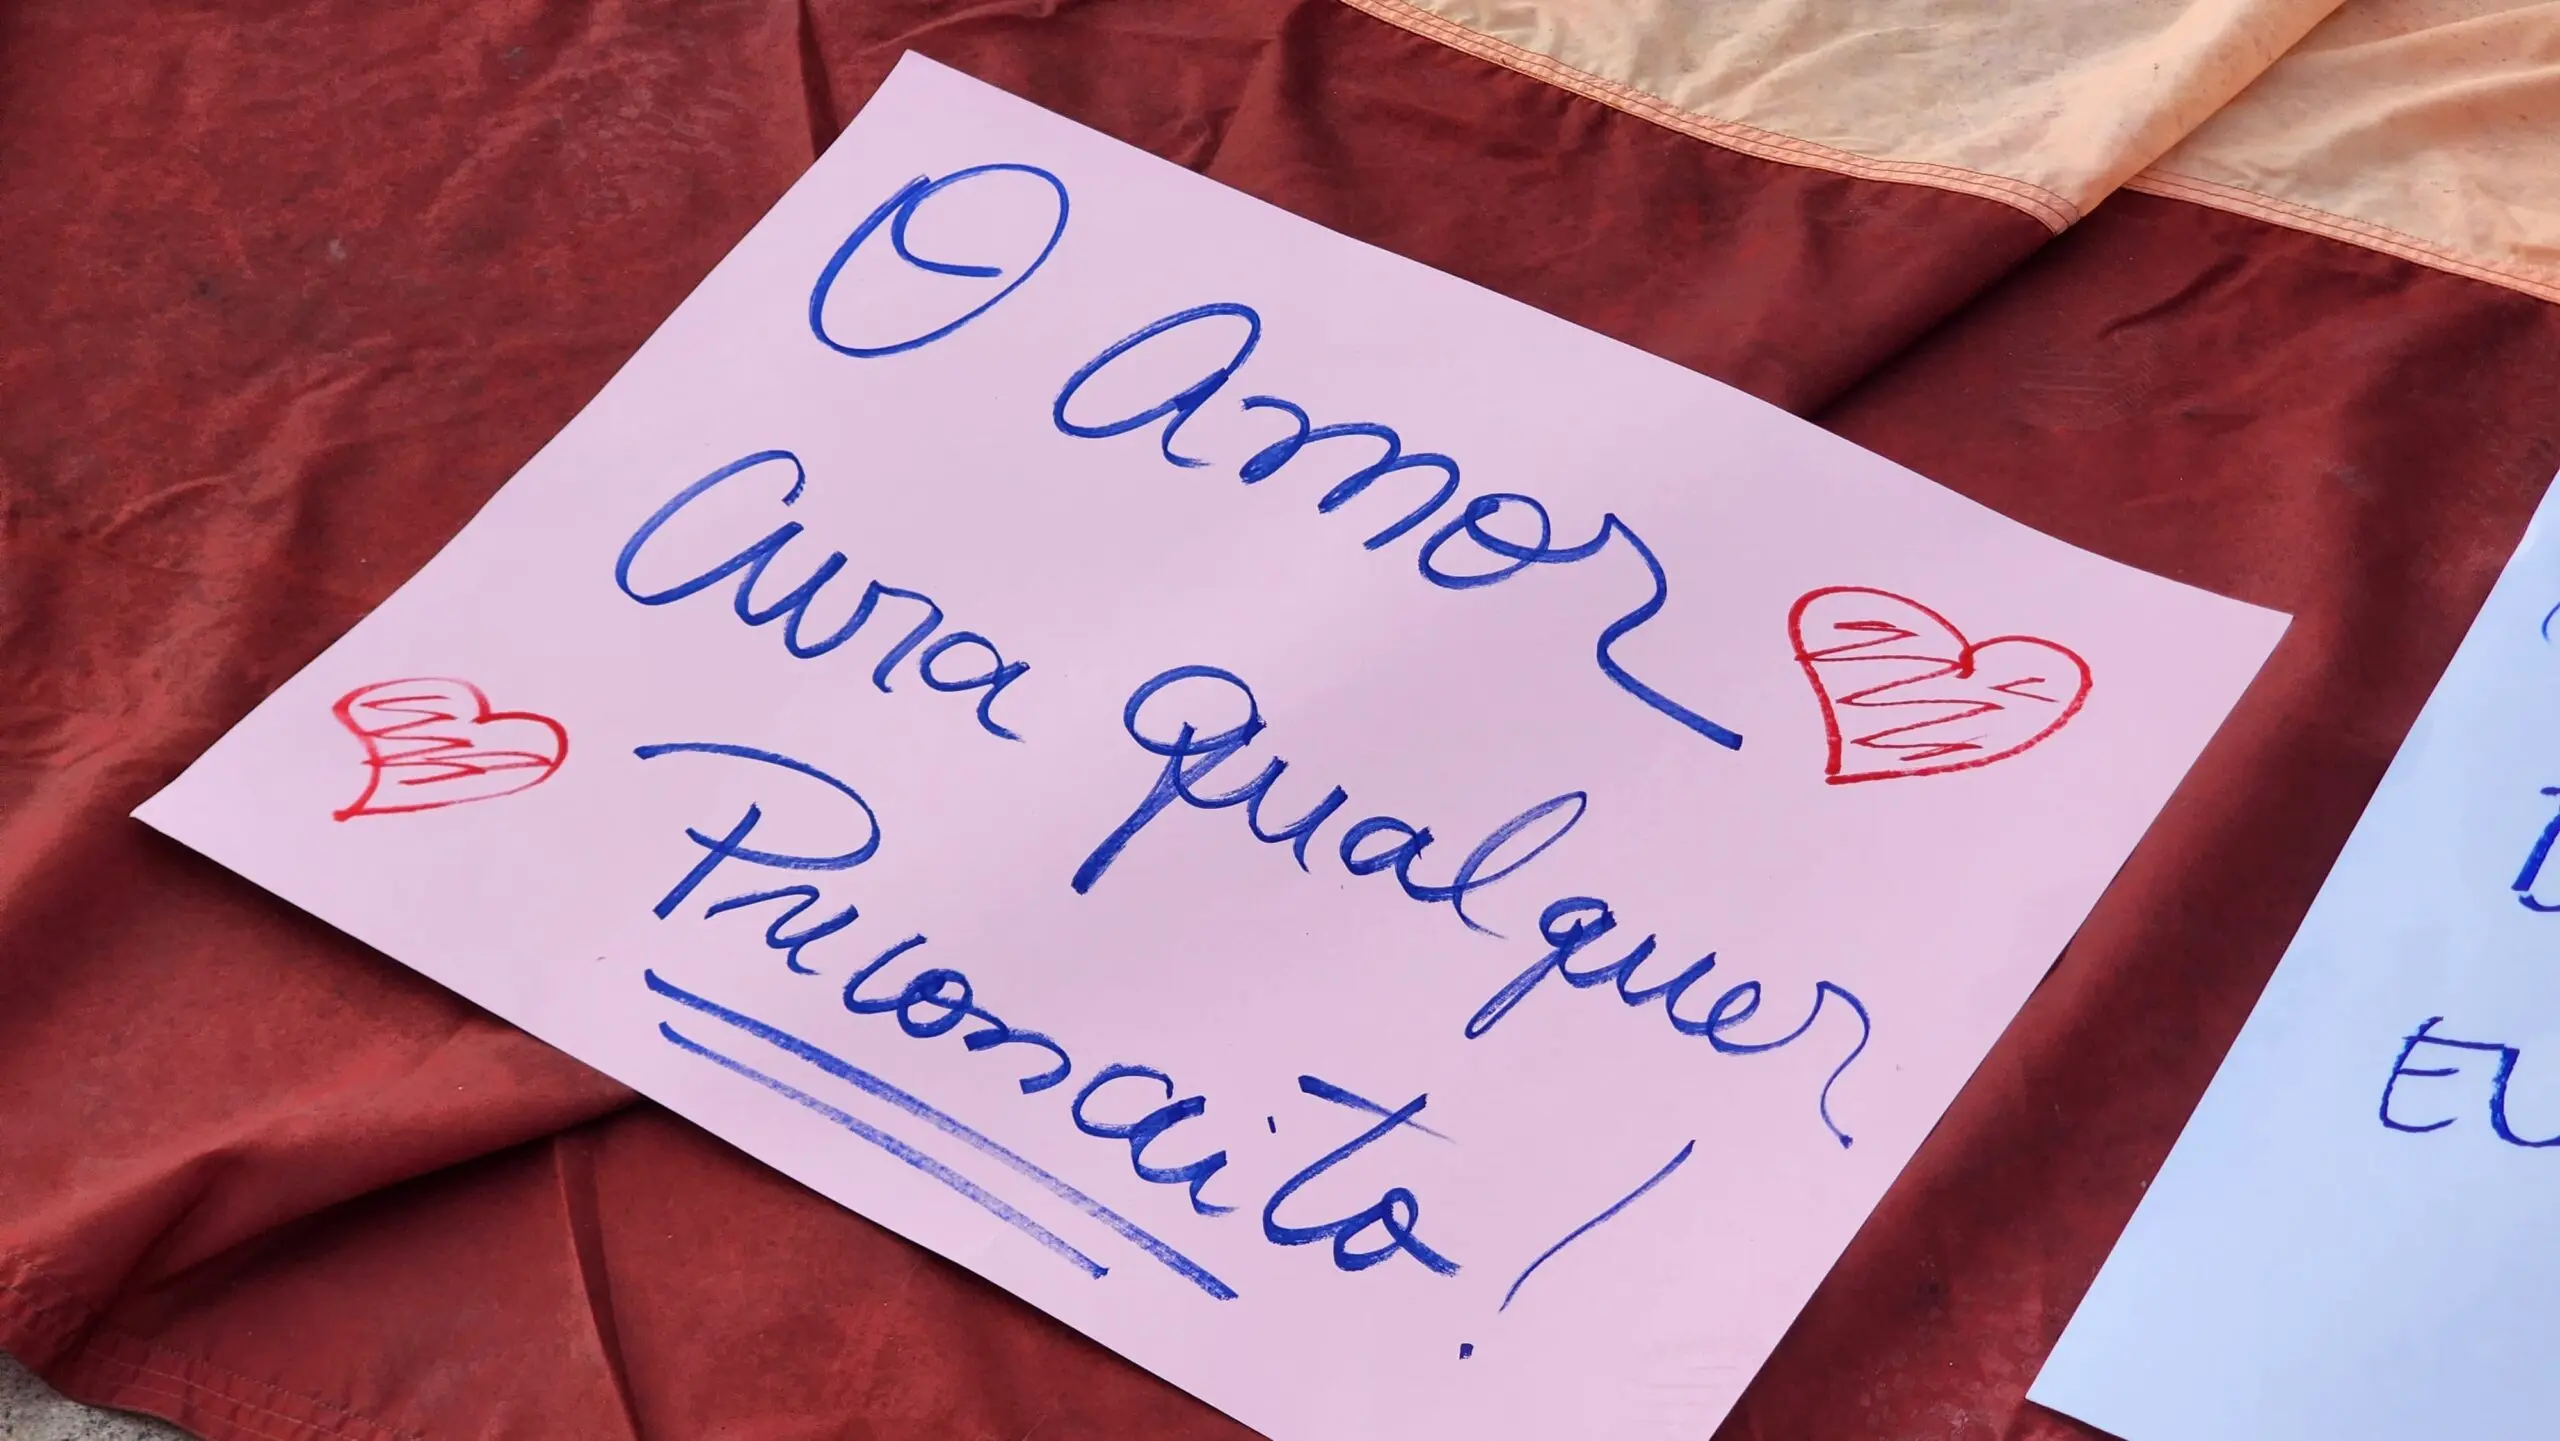 O Amor
Cura Qualquer
Preconceito!
EU